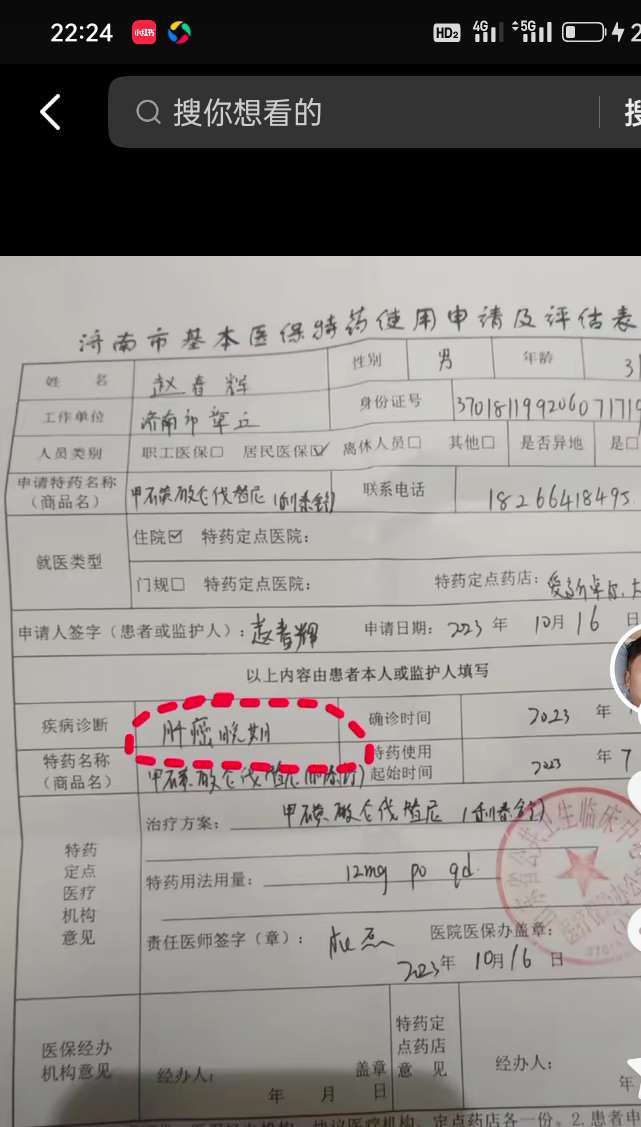 22:24
小红书
HD2 4G 5G 2
搜你想看的
济南市基本医保特药使用申请及评估表
姓 名 赵春辉 性别 男 年龄 31
工作单位 济南市章丘 身份证号 37018119920607171
人员类别 职工医保☐ 居民医保☑ 离休人员☐ 其他☐ 是否异地 是☐
申请特药名称(商品名) 甲磺酸仑伐替尼 联系电话 18266418495
就医类型 住院☑ 特药定点医院:
门规☐ 特药定点医院: 特药定点药店:
申请人签字(患者或监护人): 赵春辉 申请日期: 2023 年 10月 16 日
以上内容由患者本人或监护人填写
疾病诊断 肝癌晚期 确诊时间 2023 年
特药名称(商品名) 甲磺酸仑伐替尼 特药使用起始时间 2023 年 7
特药定点医疗机构意见
治疗方案: 甲磺酸仑伐替尼
特药用法用量: 12mg po qd.
责任医师签字(章): 医院医保办盖章:
2023年 10月 16 日
医保经办机构意见 经办人: 盖章 年 月 日
特药定点药店意见 经办人: 年